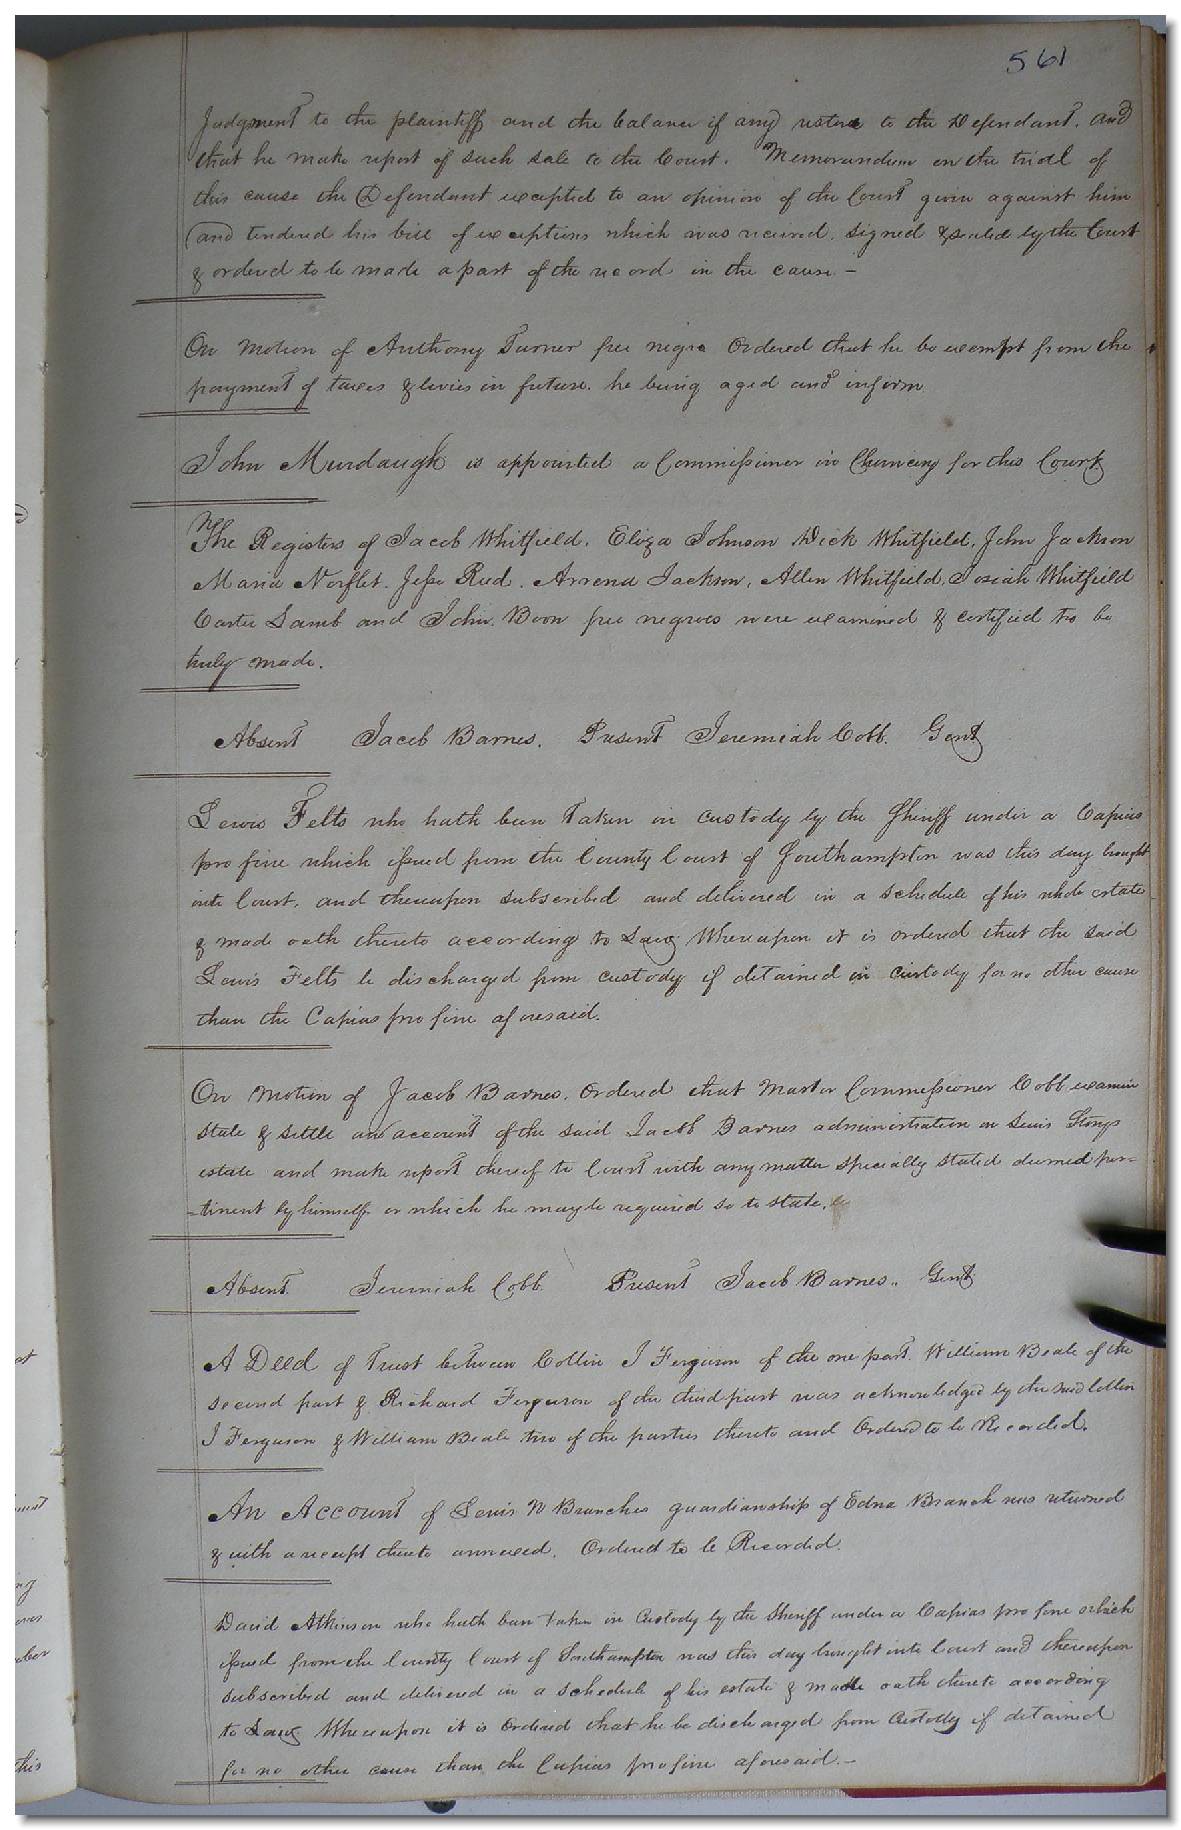 561
Judgment to the plaintiff and the balance if any restore to the Defendant. and
that he make report of such sale to the Court. Memorandum on the trial of
this cause the Defendant excepted to an opinion of the Court given against him
and tendered his bill of exceptions which was received, signed & sealed by the Court
& ordered to be made a part of the record in the cause –
On motion of Anthony Turner free negro Ordered that he be exempt from the
payment of taxes & levies in future. he being aged and infirm
John Murdaugh is appointed a Commissioner in Chancery for this Court
The Registers of Jacob Whitfield. Eliza Johnson Dick Whitfield, John Jackson
Maria Norflet. Jesse Reed. Arrena Jackson, Allen Whitfield, Josiah Whitfield
Carter Lamb and John Boon free negroes were examined & certified to be
truly made.
Absent Jacob Barnes. Present Jeremiah Cobb. Gent
Lewis Felts who hath been Taken in custody by the Sheriff under a Capias
pro fine which issued from the County Court of Southampton was this day brought
into Court, and thereupon subscribed and delivered in a schedule of his whole estate
& made oath thereto according to Law Whereupon it is ordered that the said
Lewis Felts be discharged from custody if detained in custody for no other cause
than the Capias pro fine aforesaid.
On motion of Jacob Barnes. Ordered that Master Commissioner Cobb examine
state & settle an account of the said Jacob Barnes administration on Lewis Longs
estate and make report thereof to Court with any matter specially stated deemed per=
=tinent by himself or which he may be required so to state.
Absent. Jeremiah Cobb Present Jacob Barnes. Gent
A Deed of Trust between Collin J Ferguson of the one part. William Beale of the
second part & Richard Ferguson of the third part was acknowledged by the said Collin
J Ferguson & William Beale two of the parties thereto and Ordered to be Recorded.
An Account of Lewis W Branches guardianship of Edna Branch was returned
& with a receipt thereto annexed. Ordered to be Recorded.
David Atkinson who hath been taken in Custody by the Sheriff under a Capias pro fine which
issued from the County Court of Southampton was this day brought into Court and thereupon
subscribed and delivered in a schedule of his estate & made oath thereto according
to Law Whereupon it is Ordered that he be discharged from Custody if detained
for no other cause than the Capias pro fine aforesaid.–